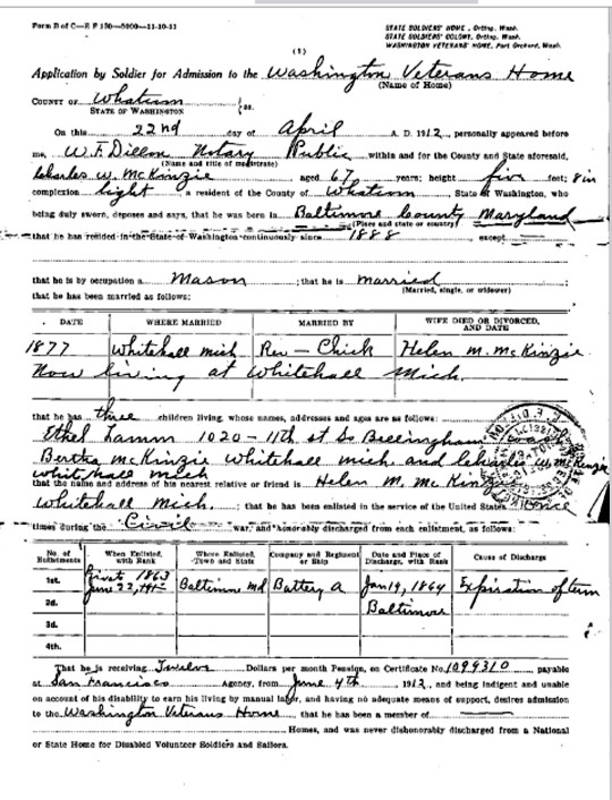 Form B of C—E F 150—5000—11-10-11
STATE SOLDIERS' HOME, Orting, Wash.
STATE SOLDIERS' COLONY, Orting, Wash.
WASHINGTON VETERANS' HOME, Port Orchard, Wash.
(1)
Application by Soldier for Admission to the Washington Veterans Home
(Name of Home)
COUNTY OF Whatcom
STATE OF WASHINGTON } ss.
On this 22nd day of April A. D. 1912, personally appeared before
me, W. F. Dillon Notary Public within and for the County and State aforesaid,
(Name and title of magistrate)
Charles W. McKinzie aged 67 years; height five feet; 8 in
complexion light, a resident of the County of Whatcom, State of Washington, who
being duly sworn, deposes and says, that he was born in Baltimore County Maryland
(Place and state or country)
that he has resided in the State of Washington continuously since 1888, except
that he is by occupation a Mason; that he is married
(Married, single, or widower)
that he has been married as follows:
DATE WHERE MARRIED MARRIED BY WIFE DIED OR DIVORCED, AND DATE
1877 Whitehall mich Rev — Chick Helen M. McKinzie
Now living at Whitehall Mich.
that he has three children living, whose names, addresses and ages are as follows:
Ethel Lamm 1020 - 11th st So Bellingham Wash
Bertha McKinzie Whitehall mich and Charles W. McKinzie
Whitehall mich
that the name and address of his nearest relative or friend is Helen M. McKinzie
Whitehall Mich.; that he has been enlisted in the service of the United States once
times during the Civil war, and honorably discharged from each enlistment, as follows:
No. of Enlistments When Enlisted, with Rank Where Enlisted, Town and State Company and Regiment or Ship Date and Place of Discharge, with Rank Cause of Discharge
1st. Privat 1863 June 22, Baltimore Md Battery A Jan 19, 1864 Expiration of term
2d. Baltimore
3d.
4th.
That he is receiving Twelve Dollars per month Pension, on Certificate No. 1099310, payable
at San Francisco Agency, from June 4th, 1912, and being indigent and unable
on account of his disability to earn his living by manual labor, and having no adequate means of support, desires admission
to the Washington Veterans Home, that he has been a member of
Homes, and was never dishonorably discharged from a National
or State Home for Disabled Volunteer Soldiers and Sailors.